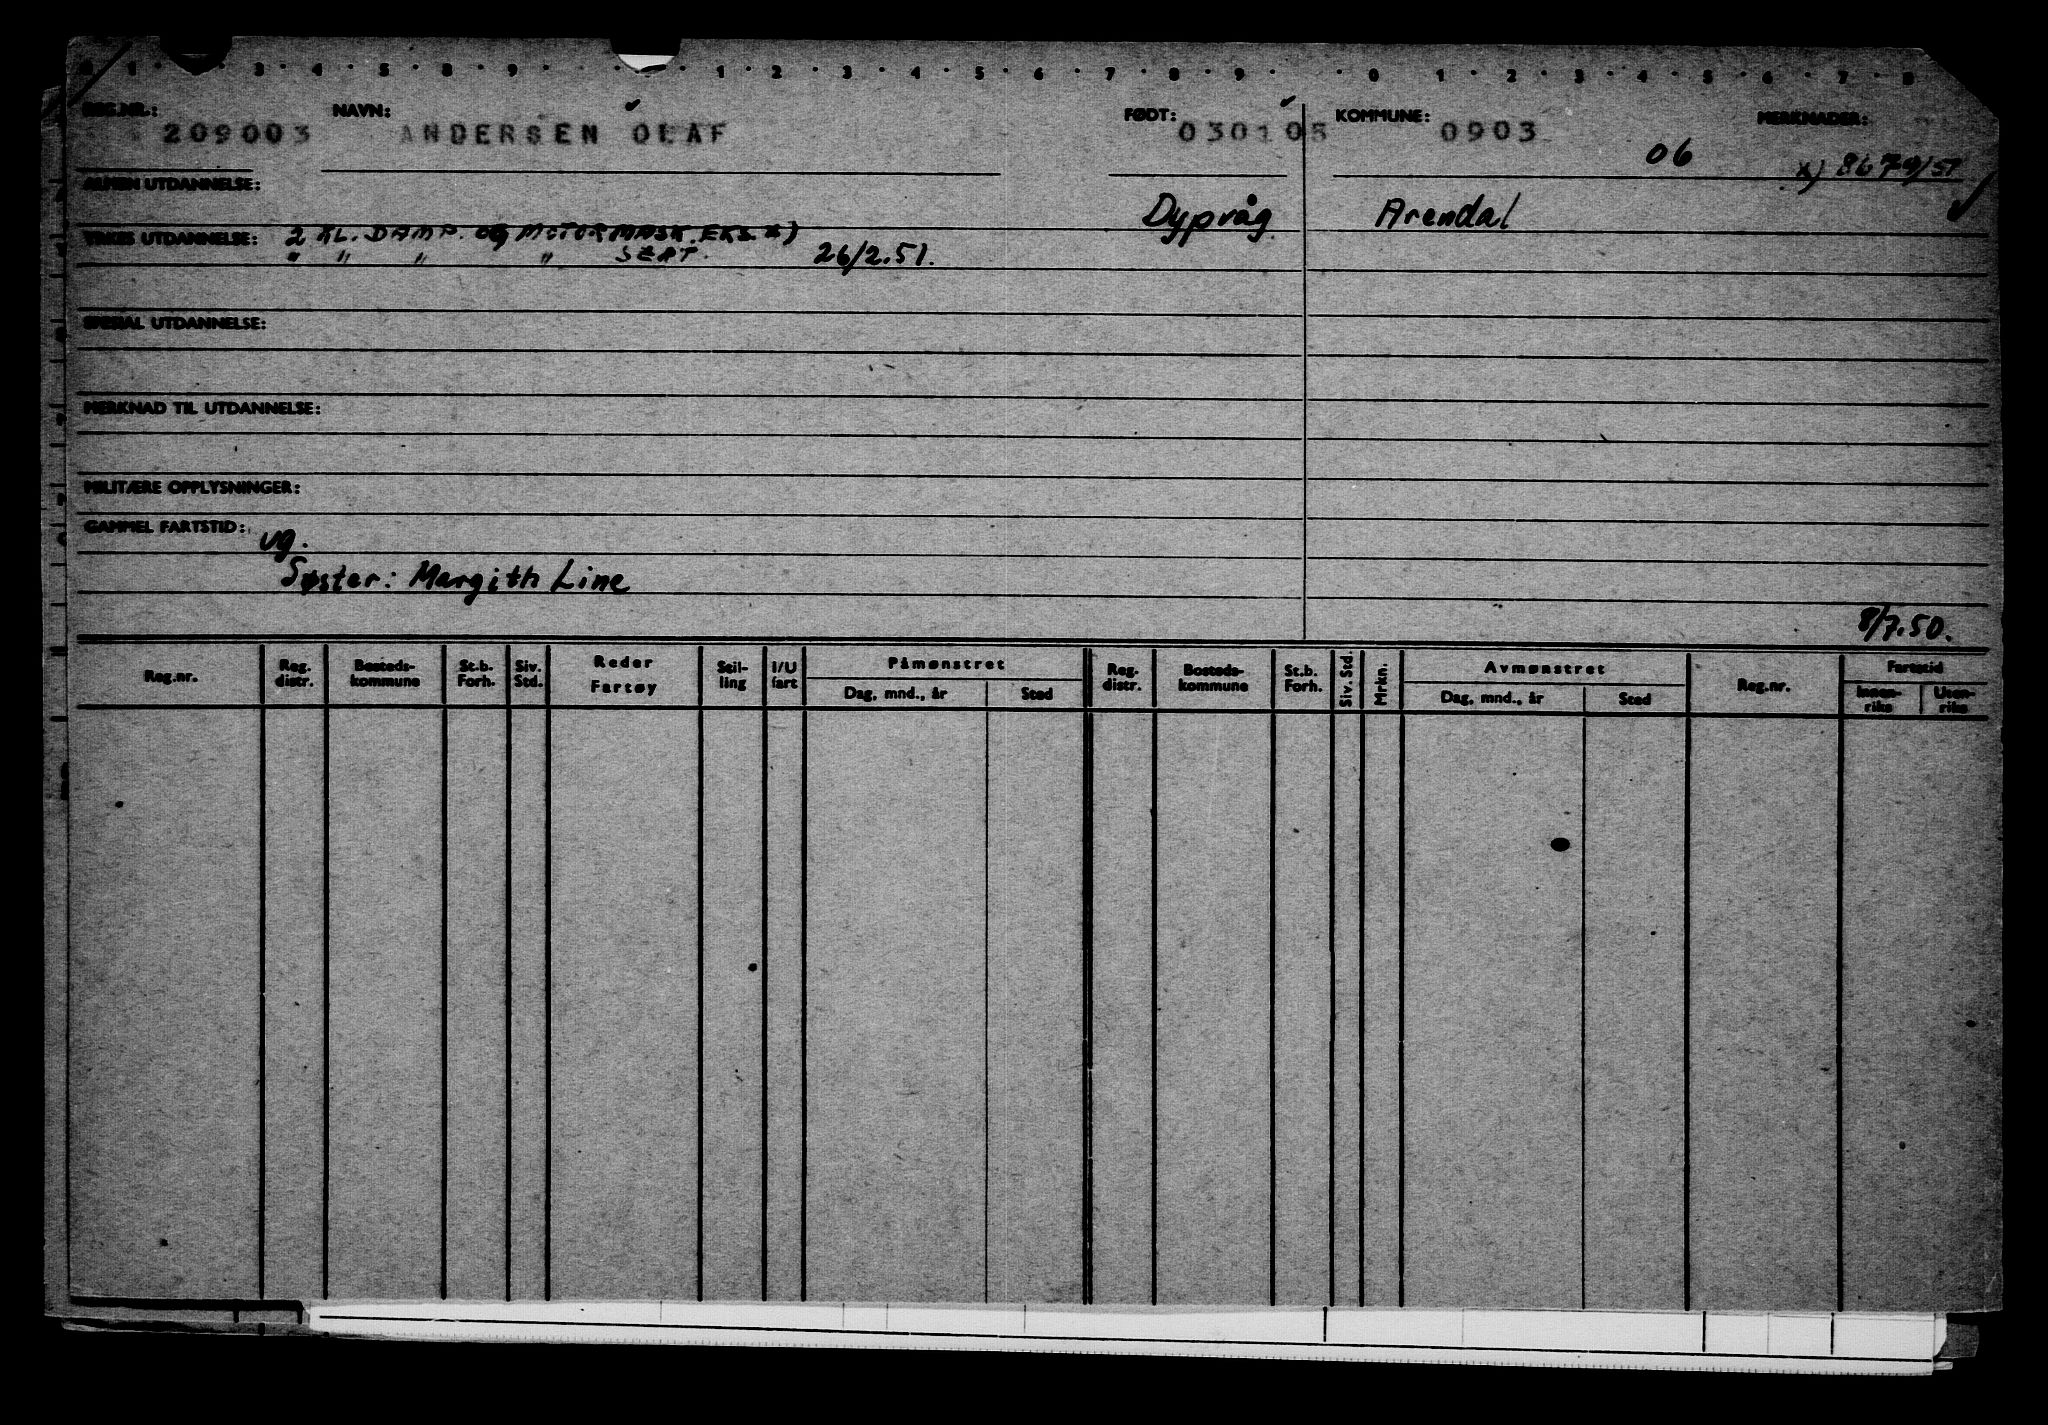 REG.NR.: 209003 NAVN: ANDERSEN OLAF FØDT: 030105 KOMMUNE: 0903 MERKNADER:
06 x) 8679/51
ALMEN UTDANNELSE:
Dypvåg Arendal
YRKES UTDANNELSE: 2 KL. DAMP. OG MOTORMASK. EKS. x)
" " " " SERT. 26/2.51.
SPESIAL UTDANNELSE:
MERKNAD TIL UTDANNELSE:
MILITÆRE OPPLYSNINGER:
GAMMEL FARTSTID: ug.
Søster: Margith Line
8/7.50.
Reg.nr. Reg. distr. Bosteds-kommune St.b. Forh. Siv. Std. Reder Fartøy Stil-ling I/U fart Påmønstret Dag, mnd., år Sted Reg. distr. Bosteds-kommune St.b. Forh. Siv. Std. Mrkn. Avmønstret Dag, mnd., år Sted Reg.nr. Fartstid Innen-riks Uten-riks